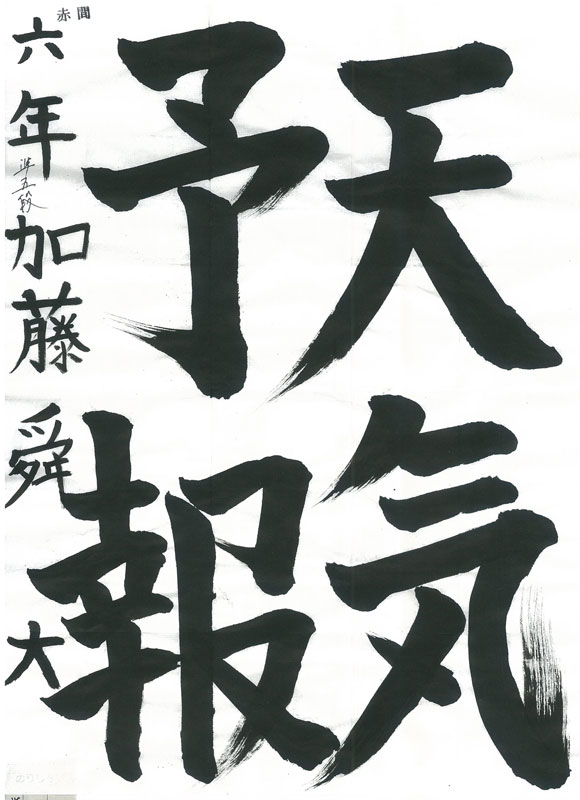 天気
予報
赤間
六年加藤舜大
準五段